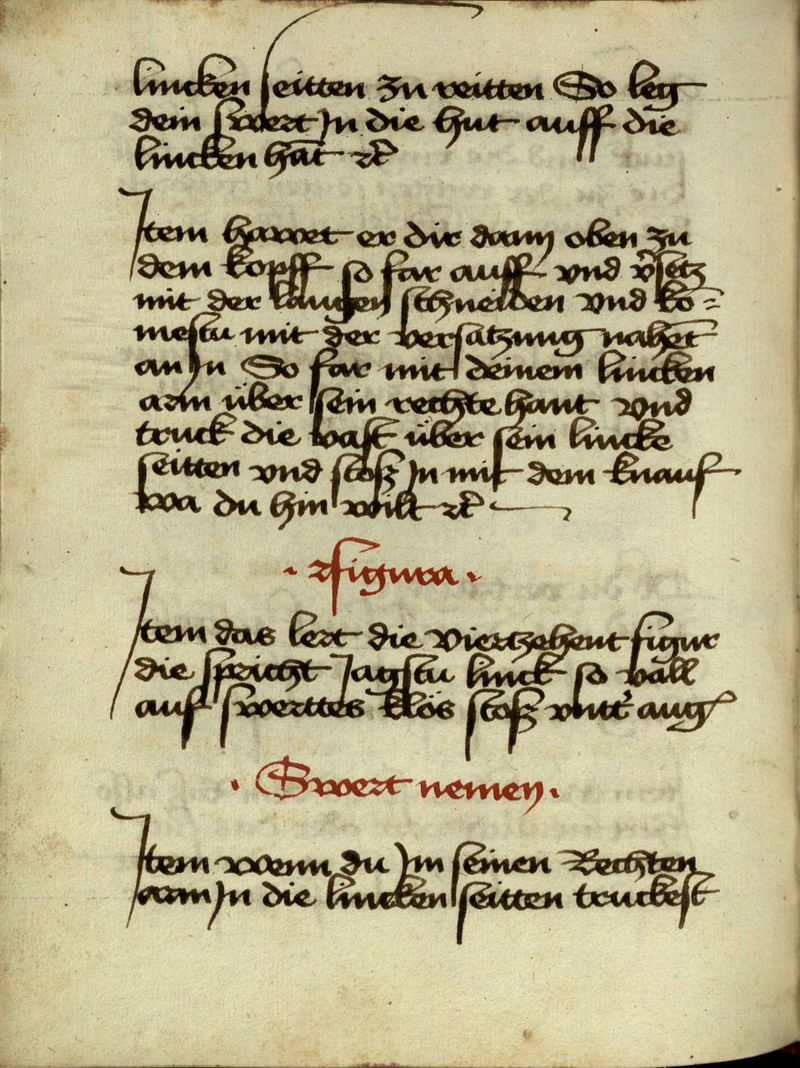 lincken seitten zu reitten So leg
dein swert Jn die hut auff die
lincken hāt rc̄
Jtem hawet er dir dann oben zu
dem kopff so far auff vnd v̉setz
mit der langen schneiden vnd ko=
mestu mit der versatzung nahet̄
an Jn So far mit deinem lincken
arm über sein rechte hant vnd
truck die vast über sein lincke
seitten vnd stosß Jn mit dem knauf
wa du hin wilt rc̄
· Figura ·
Jtem das lert die viertzehent figur
die spricht Jagstu linck so vall
auf swerttes klös stosß vntt̉ aug
· Swert nemen ·
Jtem wenn du Jm seinen Rechten
arm Jn die lincken seitten truckest